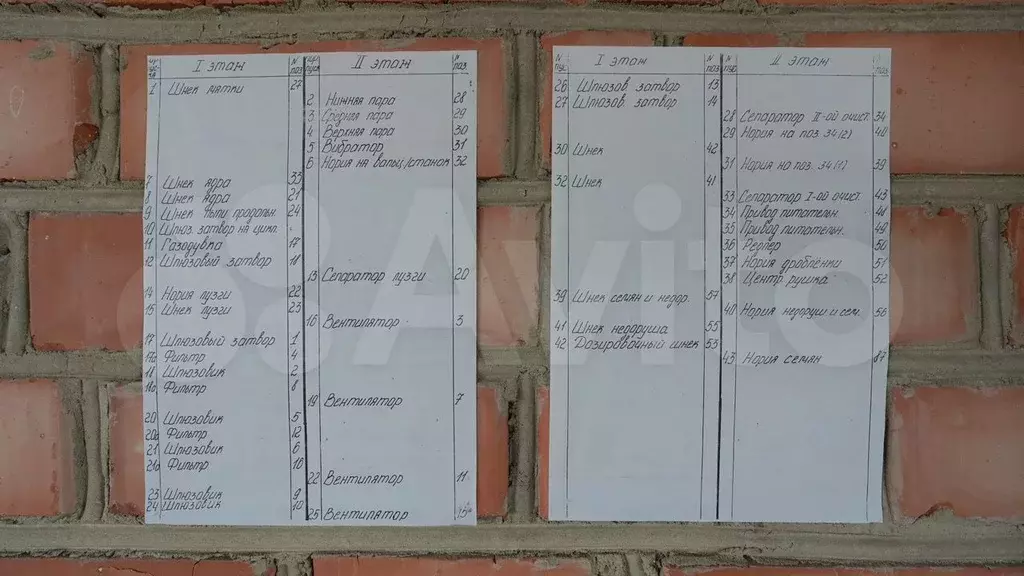 I этаж N поз II этаж N поз
1 Шнек мятки 27
2 Нижняя пара 28
3 Средняя пара 29
4 Верхняя пара 30
5 Вибратор 31
6 Нория на вальц/станок 32
7 Шнек ядра 33
8 Шнек ядра 21
9 Шнек пыли продольн. 24
10 Шлюз. затвор на цикл.
11 Газодувка 17
12 Шлюзовый затвор 11
13 Сепаратор лузги 20
14 Нория лузги 22
15 Шнек лузги 23
16 Вентилятор 3
17 Шлюзовый затвор 1
17а Фильтр 4
18 Шлюзовик 2
18а Фильтр 8
19 Вентилятор 7
20 Шлюзовик 5
20а Фильтр 12
21 Шлюзовик 6
21а Фильтр 16
22 Вентилятор 11
23 Шлюзовик 9
24 Шлюзовик 10
25 Вентилятор
I этаж N поз II этаж
26 Шлюзов затвор 13
27 Шлюзов затвор 14
28 Сепаратор II-ой очист. 34
29 Нория на поз 34(2) 40
30 Шнек 42
31 Нория на поз. 34(1) 39
32 Шнек 41
33 Сепаратор I-ой очист. 43
34 Привод питательн.
35 Привод питательн. 49
36 Редлер 50
37 Нория дробленки 51
38 Центр рушка 52
39 Шнек семян и недор. 57
40 Нория недоруши и сем. 56
41 Шнек недоруша 55
42 Дозировочный шнек 53
43 Нория семян 87
Avito